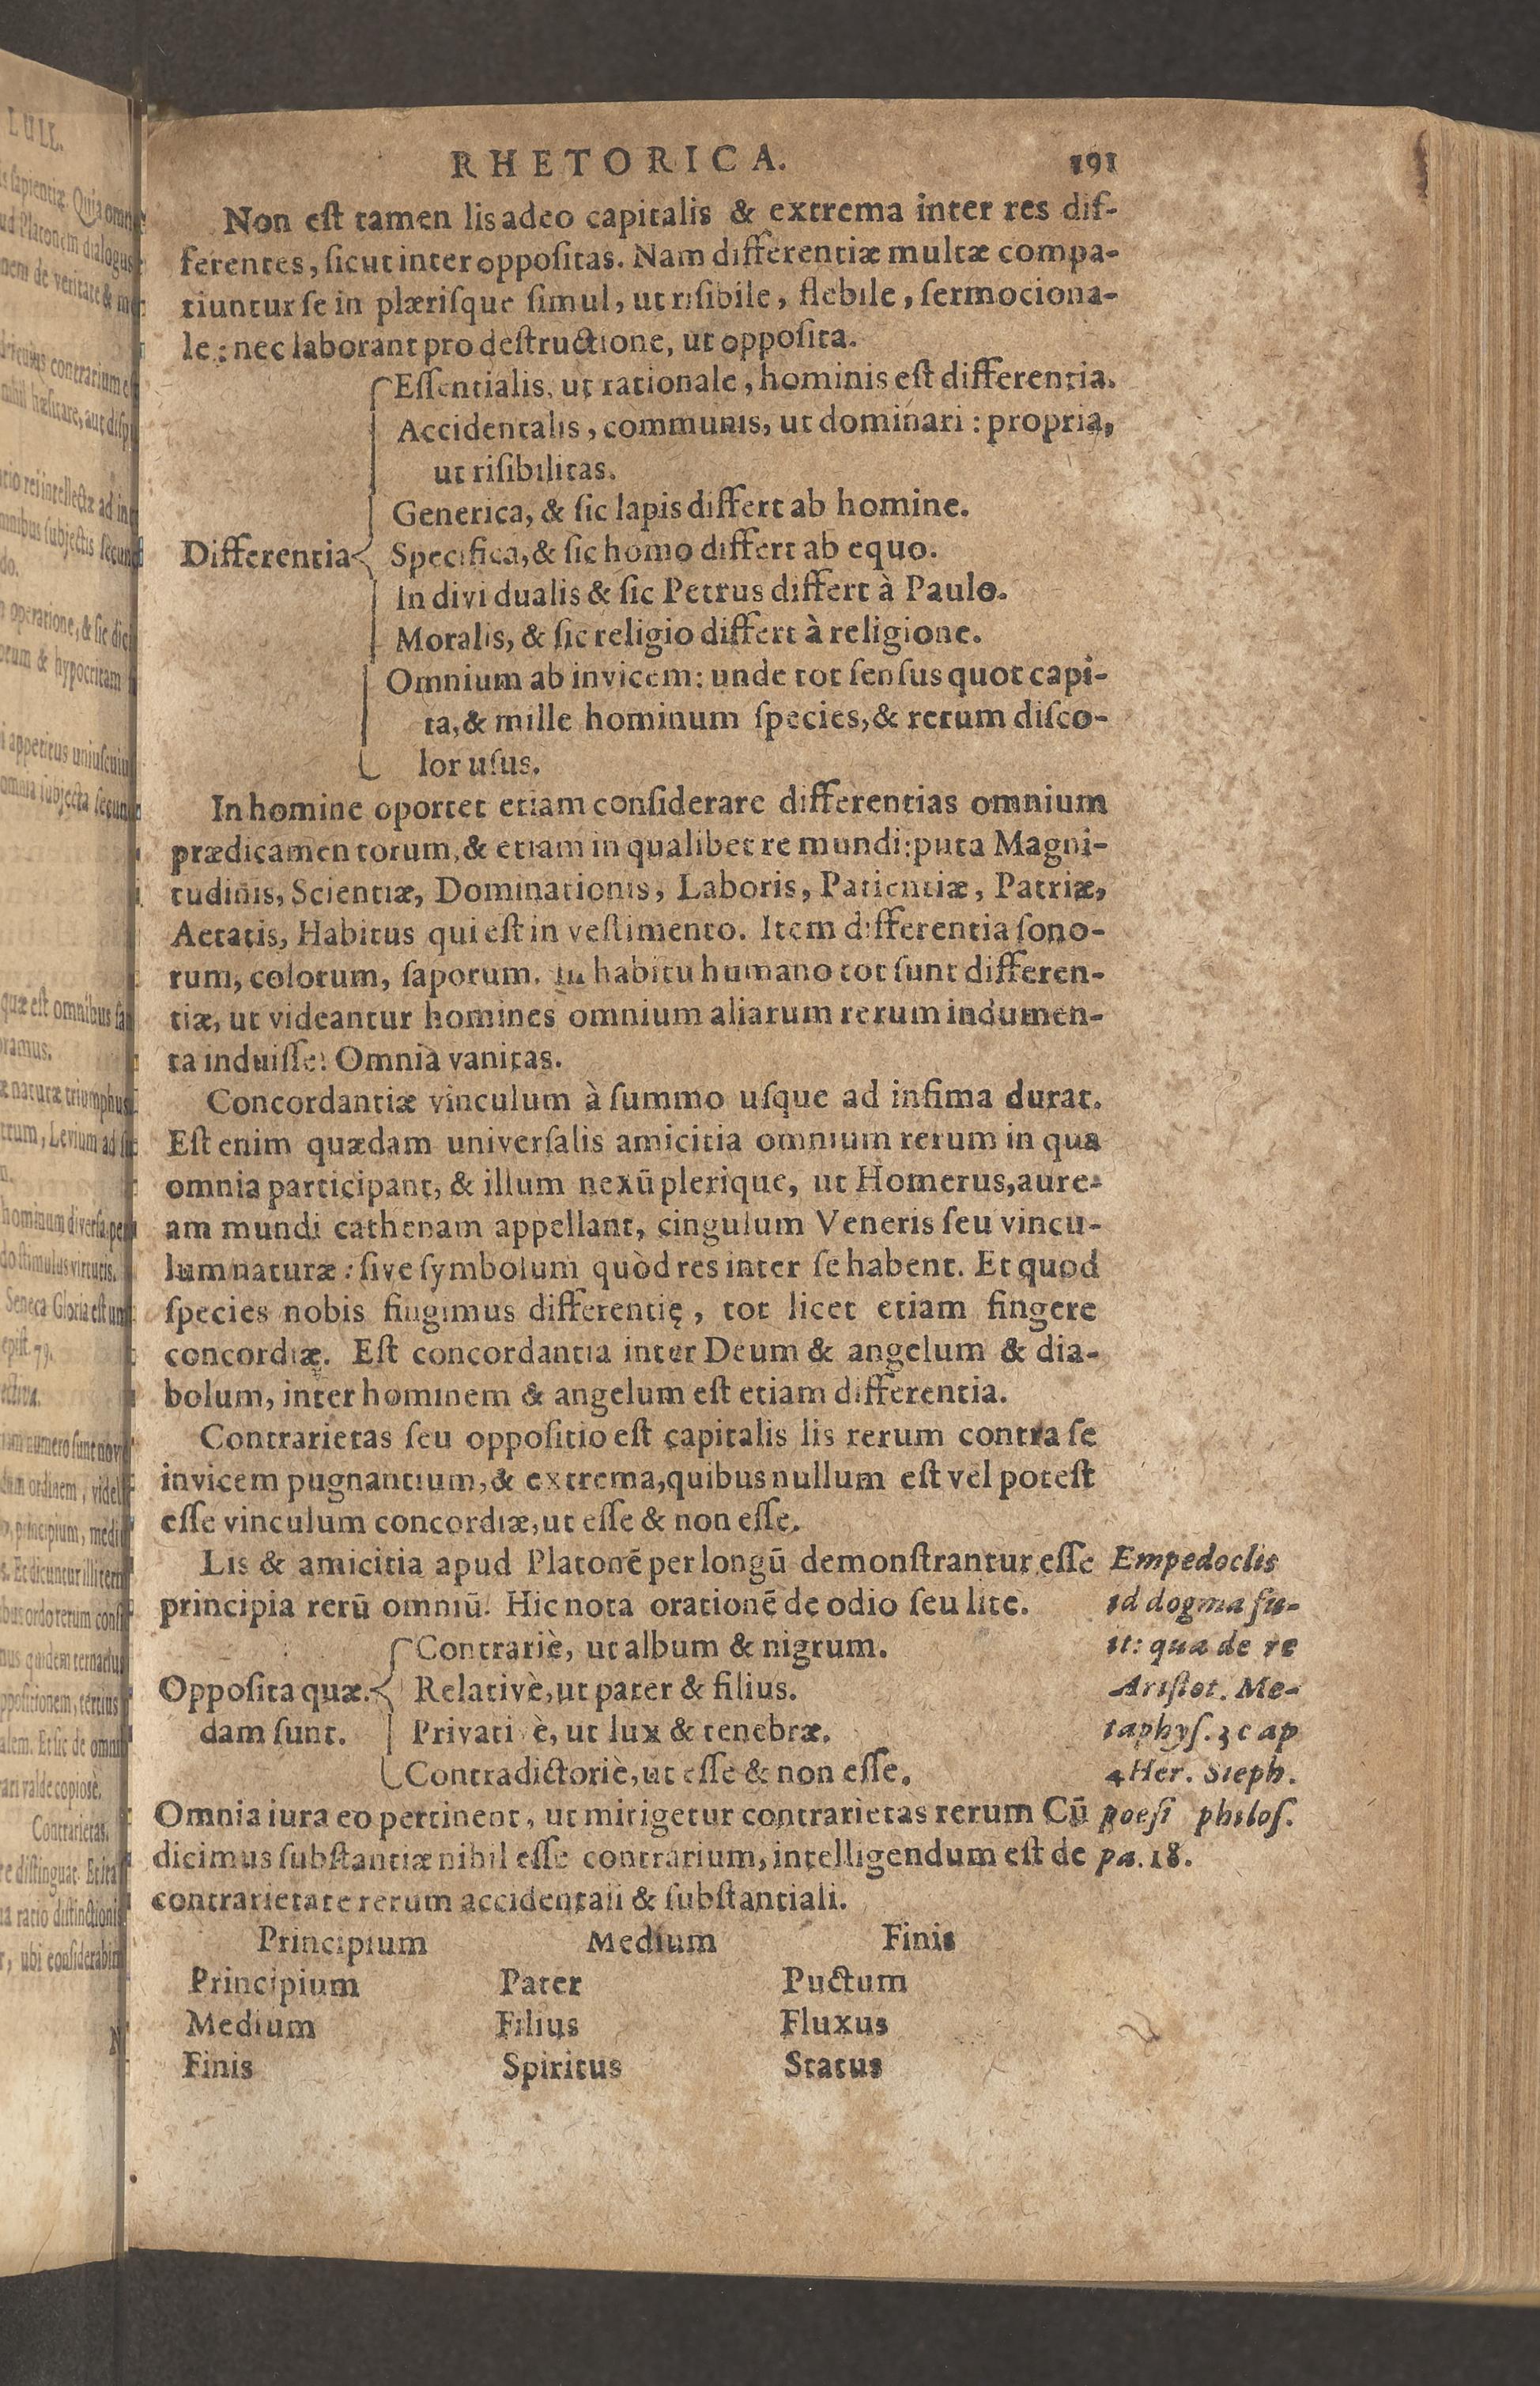 RHETORICA. 191
Non eſt tamen lis adeo capitalis & extrema inter res dif-
ferentes, ſicut inter oppoſitas. Nam differentiæ multæ compa-
tiuntur ſe in plæriſque ſimul, ut riſibile, flebile, ſermociona-
le: nec laborant pro deſtructione, ut oppoſita.
Eſſentialis, ut rationale, hominis eſt differentia.
Accidentalis, communis, ut dominari: propria,
ut riſibilitas.
Generica, & ſic lapis differt ab homine.
Differentia Specifica, & ſic homo differt ab equo.
Indivi dualis & ſic Petrus differt à Paulo.
Moralis, & ſic religio differt à religione.
Omnium ab invicem: unde tot ſenſus quot capi-
ta, & mille hominum ſpecies, & rerum diſco-
lor uſus.
In homine oportet etiam conſiderare differentias omnium
prædicamentorum, & etiam in qualibet re mundi: puta Magni-
tudinis, Scientiæ, Dominationis, Laboris, Patientiæ, Patriæ,
Aetatis, Habitus qui eſt in veſtimento. Item differentia ſono-
rum, colorum, ſaporum. In habitu humano tot ſunt differen-
tiæ, ut videantur homines omnium aliarum rerum indumen-
ta induiſſe: Omnia vanitas.
Concordantiæ vinculum à ſummo uſque ad infima durat.
Eſt enim quædam univerſalis amicitia omnium rerum in qua
omnia participant, & illum nexū plerique, ut Homerus, aure-
am mundi cathenam appellant, cingulum Veneris ſeu vincu-
lum naturæ: ſive ſymbolum quòd res inter ſe habent. Et quod
ſpecies nobis fingimus differentię, tot licet etiam fingere
concordiæ. Eſt concordantia inter Deum & angelum & dia-
bolum, inter hominem & angelum eſt etiam differentia.
Contrarietas ſeu oppoſitio eſt capitalis lis rerum contra ſe
invicem pugnantium, & extrema, quibus nullum eſt vel poteſt
eſſe vinculum concordiæ, ut eſſe & non eſſe.
Lis & amicitia apud Platonē per longū demonſtrantur eſſe
principia rerū omniū. Hic nota orationē de odio ſeu lite.
Contrariè, ut album & nigrum.
Oppoſita quæ- Relativè, ut pater & filius.
dam ſunt. Privati è, ut lux & tenebræ.
Contradictoriè, ut eſſe & non eſſe.
Omnia iura eo pertinent, ut mitigetur contrarietas rerum Cū
dicimus ſubſtantiæ nihil eſſe contrarium, intelligendum eſt de
contrarietate rerum accidentali & ſubſtantiali.
Empedoclis
id dogma fu-
it: qua de re
Ariſtot. Me-
taphyſ. 3 cap
4 Her. Steph.
poeſi philoſ.
pa. 18.
Principium Medium Finis
Principium Pater Puctum
Medium Filius Fluxus
Finis Spiritus Status